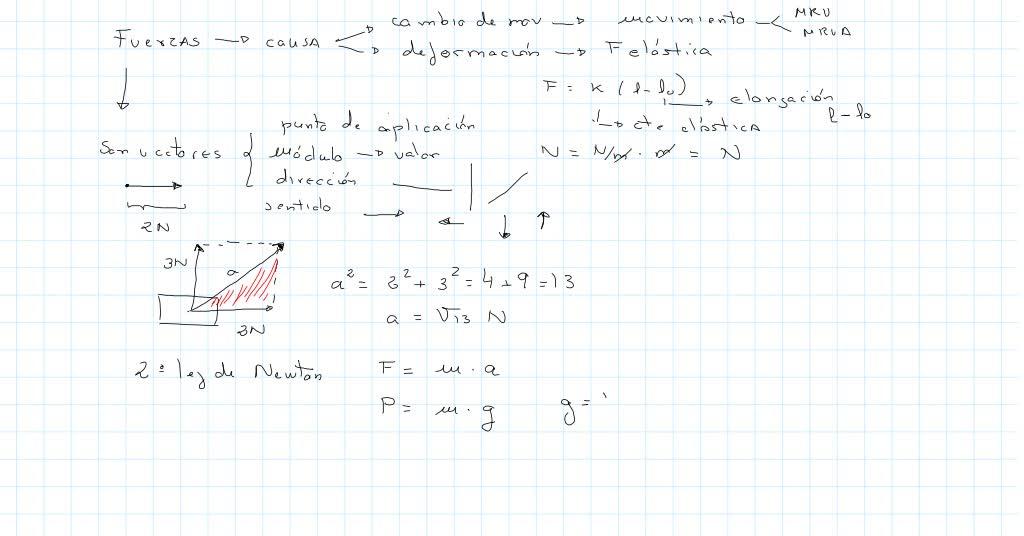 Fuerzas → causa → cambio de mov → movimiento < MRU
MRUA
→ deformación → F elástica
F = K (l - l₀)
→ elongación l - l₀
→ cte elástica
N = N/m · m = N
Son vectores { punto de aplicación
módulo → valor
dirección
sentido →
2N
3N
a
a² = 2² + 3² = 4 + 9 = 13
a = √13 N
2ª ley de Newton F = m · a
P = m · g g =